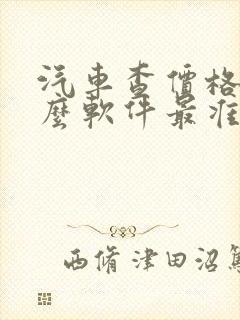 汽車查價格
麼軟件最准
西脩津田沼篤